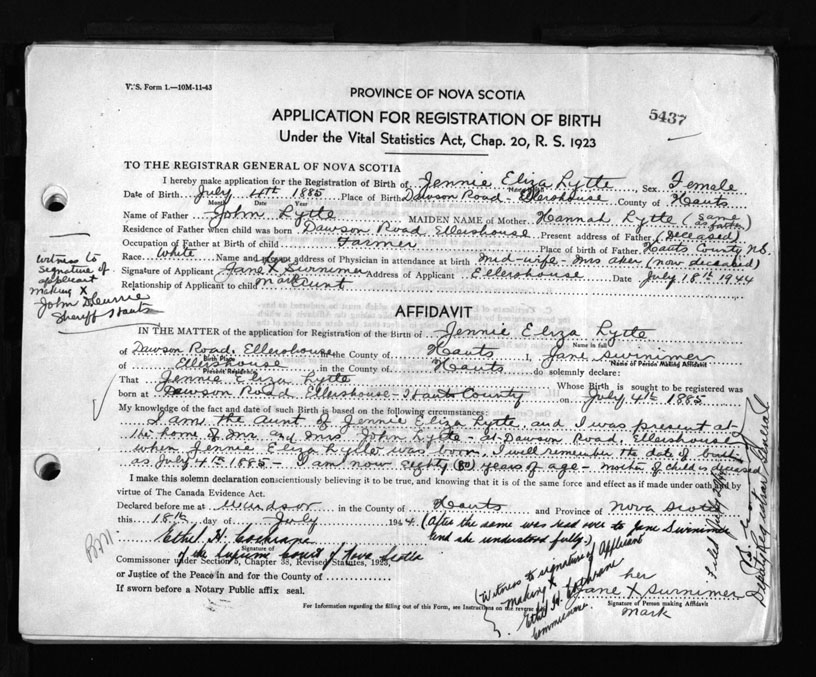 V.S. Form 1.—10M-11-43
PROVINCE OF NOVA SCOTIA
5437
APPLICATION FOR REGISTRATION OF BIRTH
Under the Vital Statistics Act, Chap. 20, R. S. 1923
TO THE REGISTRAR GENERAL OF NOVA SCOTIA
I hereby make application for the Registration of Birth of Jennie Eliza Lytte, Sex Female
Date of Birth July 4th 1885 Place of Birth Dawson Road - Ellershouse County of Hants
Month Date Year
Name of Father John Lytte MAIDEN NAME of Mother Hannah Lytte (same as father)
Residence of Father when child was born Dawson Road, Ellershouse Present address of Father (deceased)
Occupation of Father at Birth of child Farmer Place of birth of Father Hants County N.S.
Race White Name and present address of Physician in attendance at birth mid-wife - Mrs aker (now deceased)
Signature of Applicant Jane X Swinimer Address of Applicant Ellershouse Date July 18th 1944
her
mark
Relationship of Applicant to child Aunt
witness to
signature of
applicant
making X
John
Sheriff Hants
AFFIDAVIT
IN THE MATTER of the application for Registration of Birth of Jennie Eliza Lytte
Name in full
of Dawson Road, Ellershouse in the County of Hants I, Jane Swinimer
Birth Place
Name of Person Making Affidavit
of Ellershouse in the County of Hants do solemnly declare:
Present Residence
That Jennie Eliza Lytte Whose Birth is sought to be registered was
born at Dawson Road Ellershouse - Hants County on July 4th 1885
My knowledge of the fact and date of such Birth is based on the following circumstances:
I am the aunt of Jennie Eliza Lytte, and I was present at
the home of Mr. and Mrs. John Lytte - at Dawson Road, Ellershouse
when Jennie Eliza Lytte was born. I well remember the date of birth
as July 4th 1885 - I am now eighty (80) years of age - mother of child is deceased
I make this solemn declaration conscientiously believing it to be true, and knowing that it is of the same force and effect as if made under oath and by
virtue of The Canada Evidence Act.
Declared before me at Windsor in the County of Hants and Province of Nova Scotia
this 18th day of July 1944 (After the same was read over to Jane Swinimer
and she understood fully.)
Ethel H. Cochrane
Signature of
of the Supreme Court of Nova Scotia
Commissioner under Section 5, Chapter 38, Revised Statutes, 1923,
or Justice of the Peace in and for the County of
If sworn before a Notary Public affix seal.
(Witness to signature of Applicant
making X
Ethel H. Cochrane
Commissioner.
her
Jane X Swinimer
Signature of Person making Affidavit
mark
For Information regarding the filling out of this Form, see Instructions on the reverse
Filed July
Deputy Registrar General